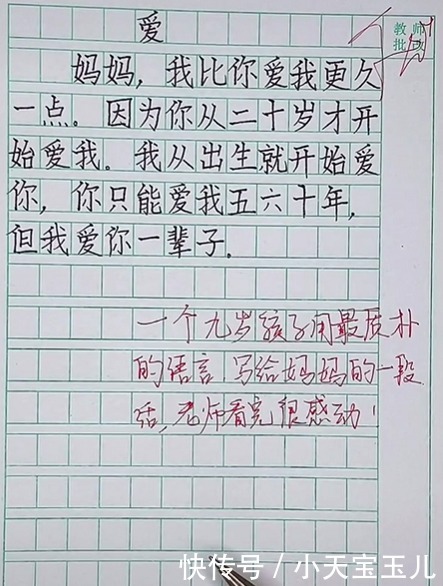 爱
教师
批改
妈妈，我比你爱我更久
一点。因为你从二十岁才开
始爱我。我从出生就开始爱
你，你只能爱我五六十年，
但我爱你一辈子。
一个九岁孩子用最质朴
的语言，写给妈妈的一段
话，老师看完很感动！
快传号／小天宝玉儿